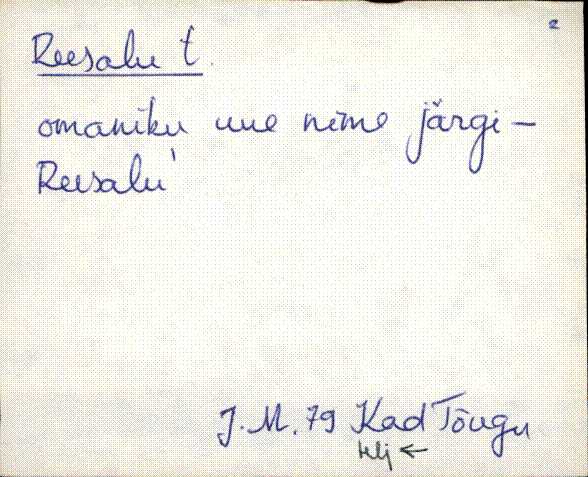 2
Reesalu t.
omaniku uue nime järgi –
Reesalu'
J. M. 79 Kad Tõugu
Hlj ←